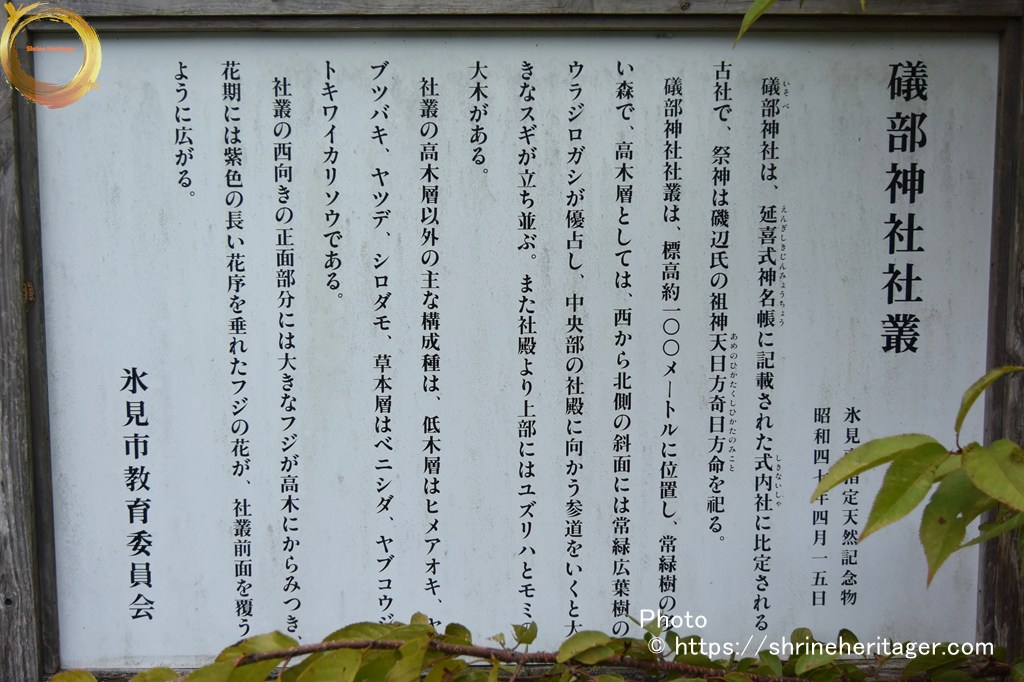 礒部神社社叢
氷見市指定天然記念物
昭和四十年四月一五日
礒部神社は、延喜式神名帳に記載された式内社に比定される
いそべ
えんぎしきじんみょうちょう
しきないしゃ
古社で、祭神は磯辺氏の祖神天日方奇日方命を祀る。
あめのひかたくしひかたのみこと
礒部神社社叢は、標高約一〇〇メートルに位置し、常緑樹の
い森で、高木層としては、西から北側の斜面には常緑広葉樹の
ウラジロガシが優占し、中央部の社殿に向かう参道をいくと大
きなスギが立ち並ぶ。また社殿より上部にはユズリハとモミの
大木がある。
社叢の高木層以外の主な構成種は、低木層はヒメアオキ、ヤ
ブツバキ、ヤツデ、シロダモ、草本層はベニシダ、ヤブコウジ
トキワイカリソウである。
社叢の西向きの正面部分には大きなフジが高木にからみつき、
花期には紫色の長い花序を垂れたフジの花が、社叢前面を覆う
ように広がる。
氷見市教育委員会
Shrine Heritager
Photo
© https://shrineheritager.com